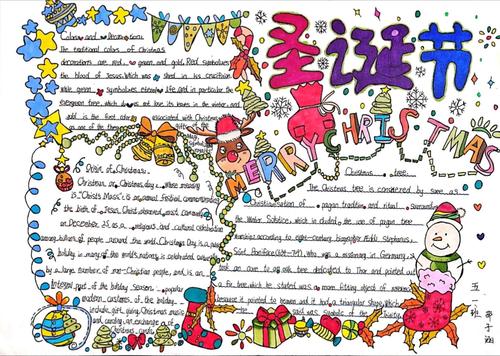 圣诞节
MERRY CHRISTMAS
Colors and Decorations
The traditional colors of Christmas
decorations are red, green and gold. Red symbolizes
the blood of Jesus, which was shed in his crucifixion
while green symbolizes eternal life and in particular the
evergreen tree, which does not lose its leaves in the winter and
gold is the first color associated with Christmas
as one of the three
Origin of Christmas
Christmas or Christmas day, whose meaning
is "Christ's Mass" is an annual festival commemorating
the birth of Jesus Christ, observed most commonly
on December 25 as a religious and cultural celebration
among billions of people around the world. Christmas Day is a public
holiday in many of the world's nations, is celebrated culturally
by a large number of non-Christian people, and is an
integral part of the holiday season, popular
modern customs of the holiday
include gift giving, Christmas music
and caroling, an exchange of
Christmas cards
Christmas tree
The Christmas tree is considered by some as
Christianisation of pagan tradition and ritual surrounding
the Winter Solstice, which included the use of pagan tree
worship; according to eighth-century biographer Æddi Stephanus,
Saint Boniface (634–709), who was a missionary in Germany,
took an axe to an oak tree dedicated to Thor and pointed out
a fir tree, which he stated was a more fitting object of reverence
because it pointed to heaven and it had a triangular shape, which
he said was symbolic of the Trinity
五一班